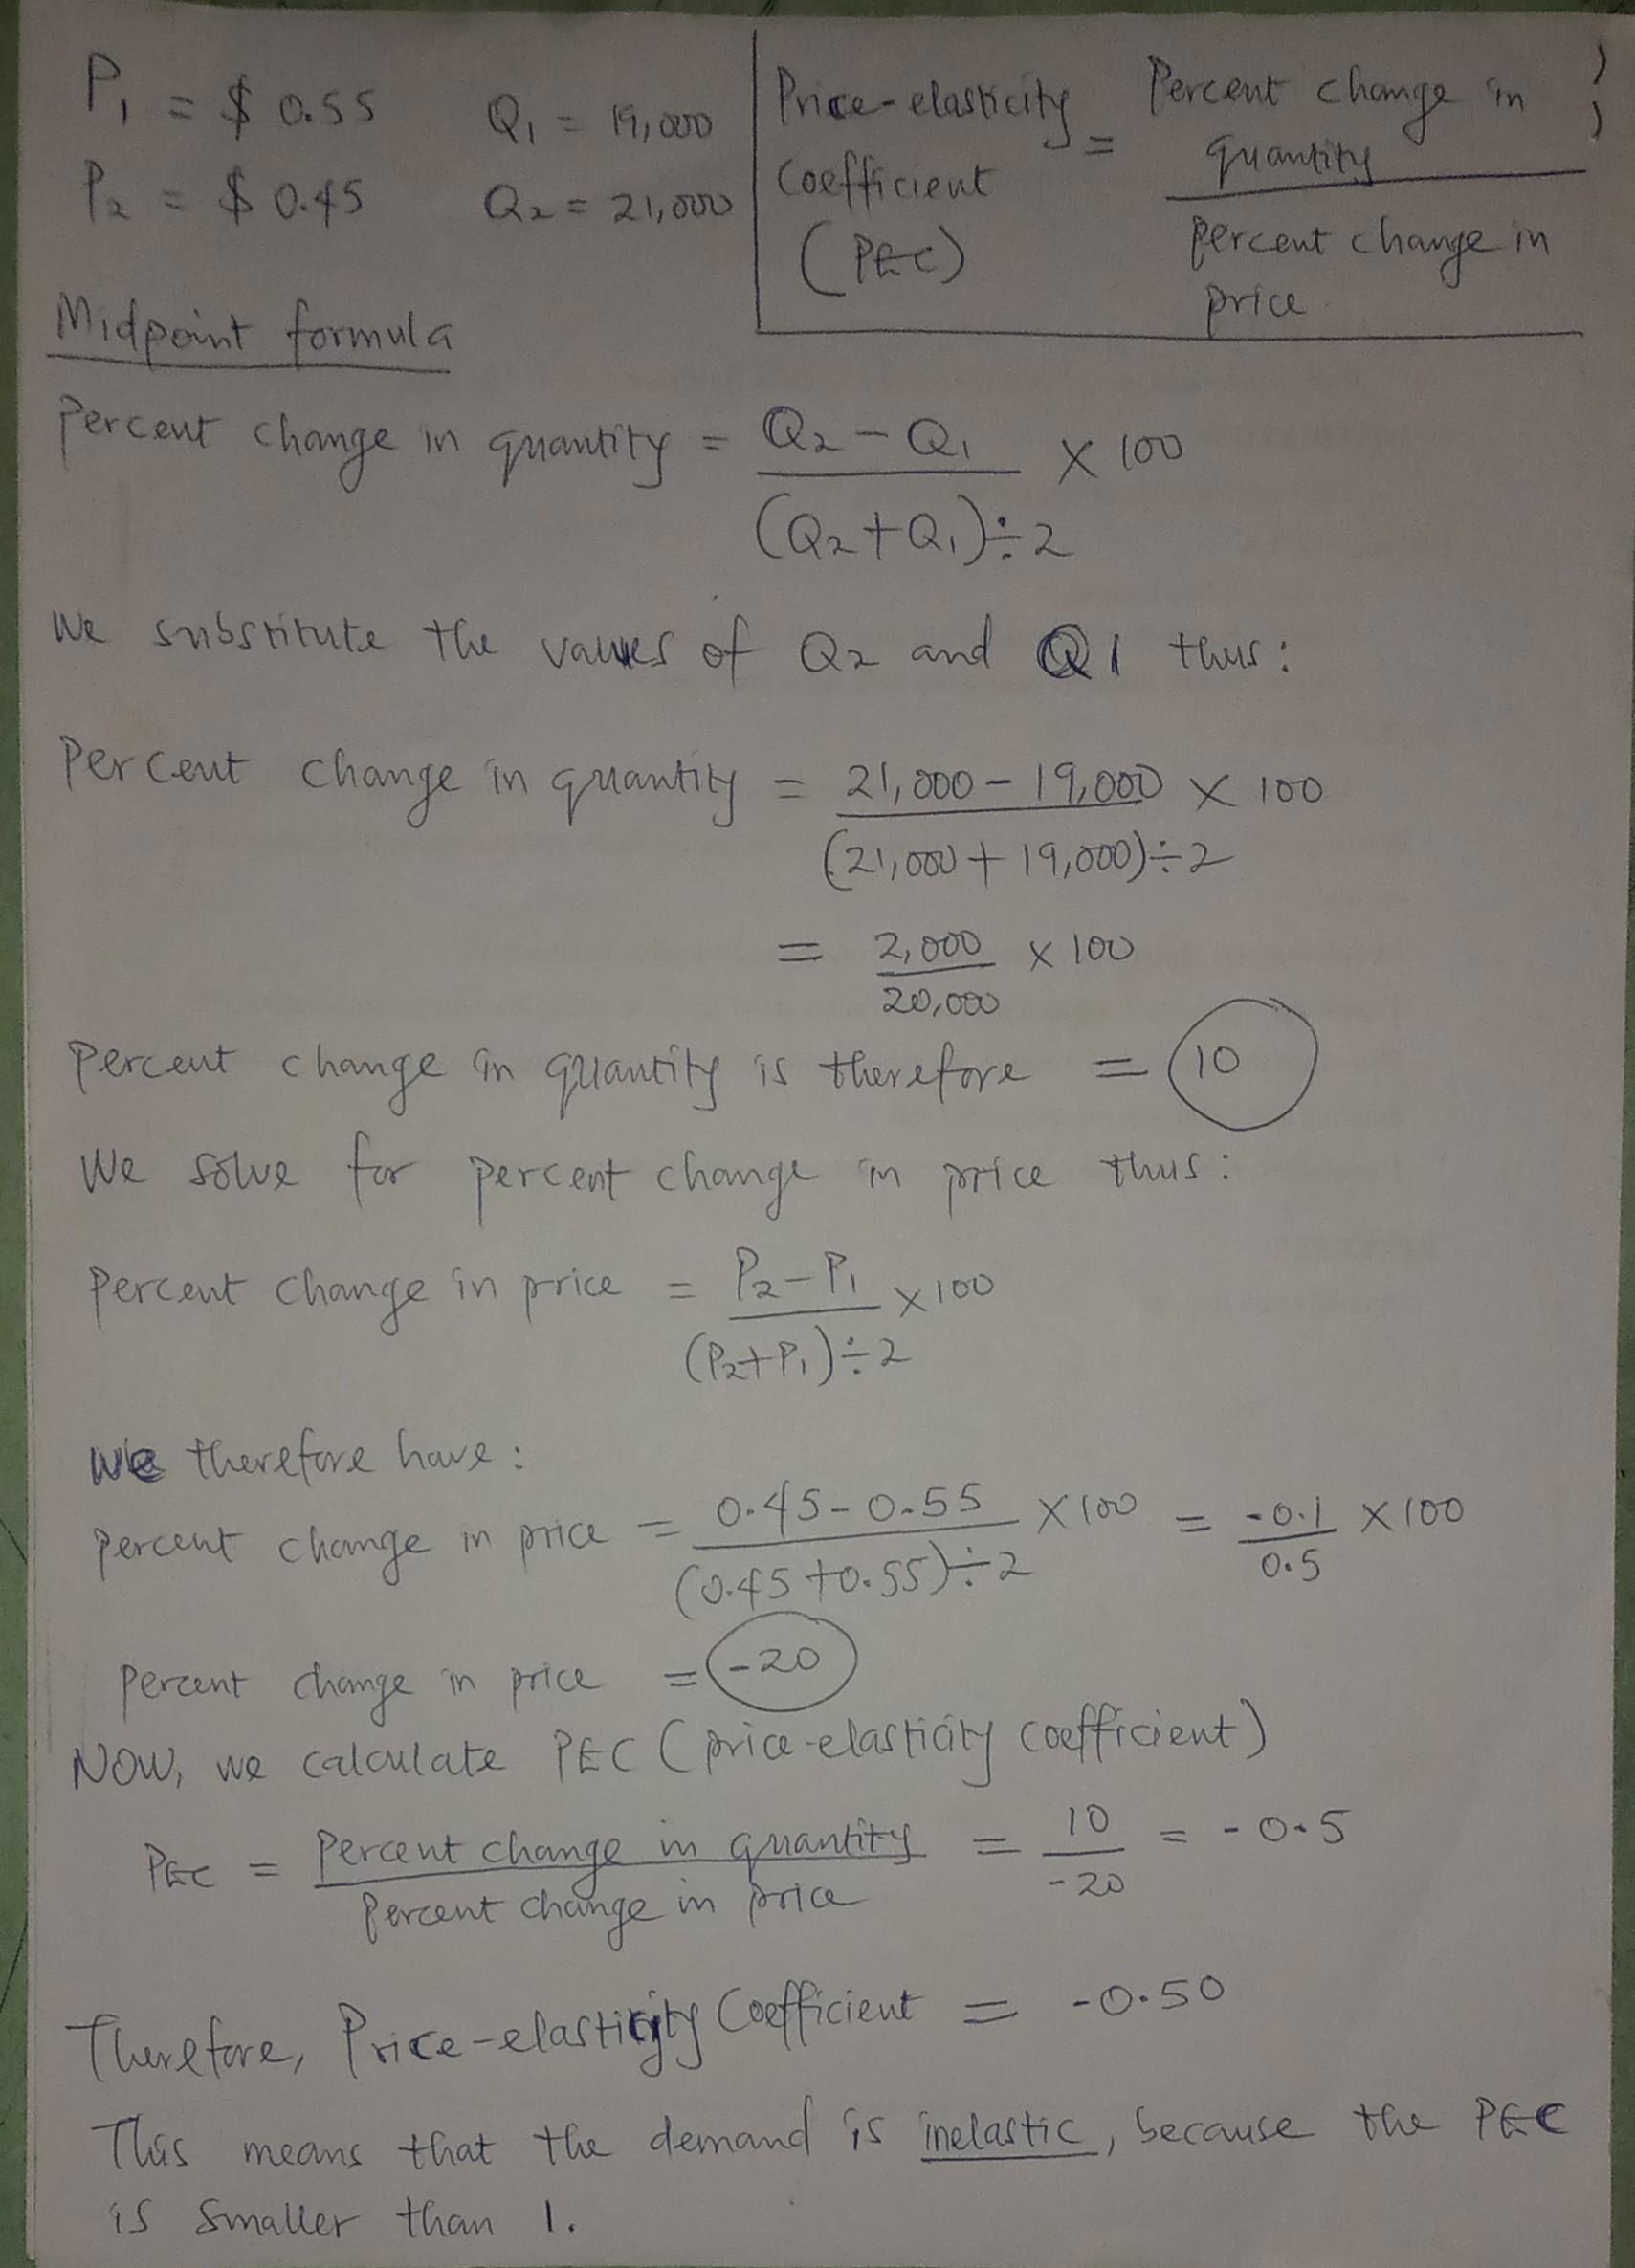 P₁ = $ 0.55 Q₁ = 19,000
P₂ = $ 0.45 Q₂ = 21,000
Price-elasticity Coefficient (PEC) = Percent change in quantity / percent change in price
Midpoint formula
Percent change in quantity = Q₂ - Q₁ / (Q₂+Q₁)÷2 × 100
We substitute the values of Q₂ and Q1 thus:
Percent change in quantity = 21,000 - 19,000 / (21,000 + 19,000)÷2 × 100
= 2,000 / 20,000 × 100
Percent change in quantity is therefore = 10
We solve for percent change in price thus:
Percent change in price = P₂-P₁ / (P₂+P₁)÷2 ×100
We therefore have:
Percent change in price = 0.45-0.55 / (0.45+0.55)÷2 ×100 = -0.1 / 0.5 ×100
Percent change in price = -20
NOW, we calculate PEC (price-elasticity coefficient)
PEC = Percent change in quantity / Percent change in price = 10 / -20 = -0.5
Therefore, Price-elasticity Coefficient = -0.50
This means that the demand is inelastic, because the PEC
is smaller than 1.